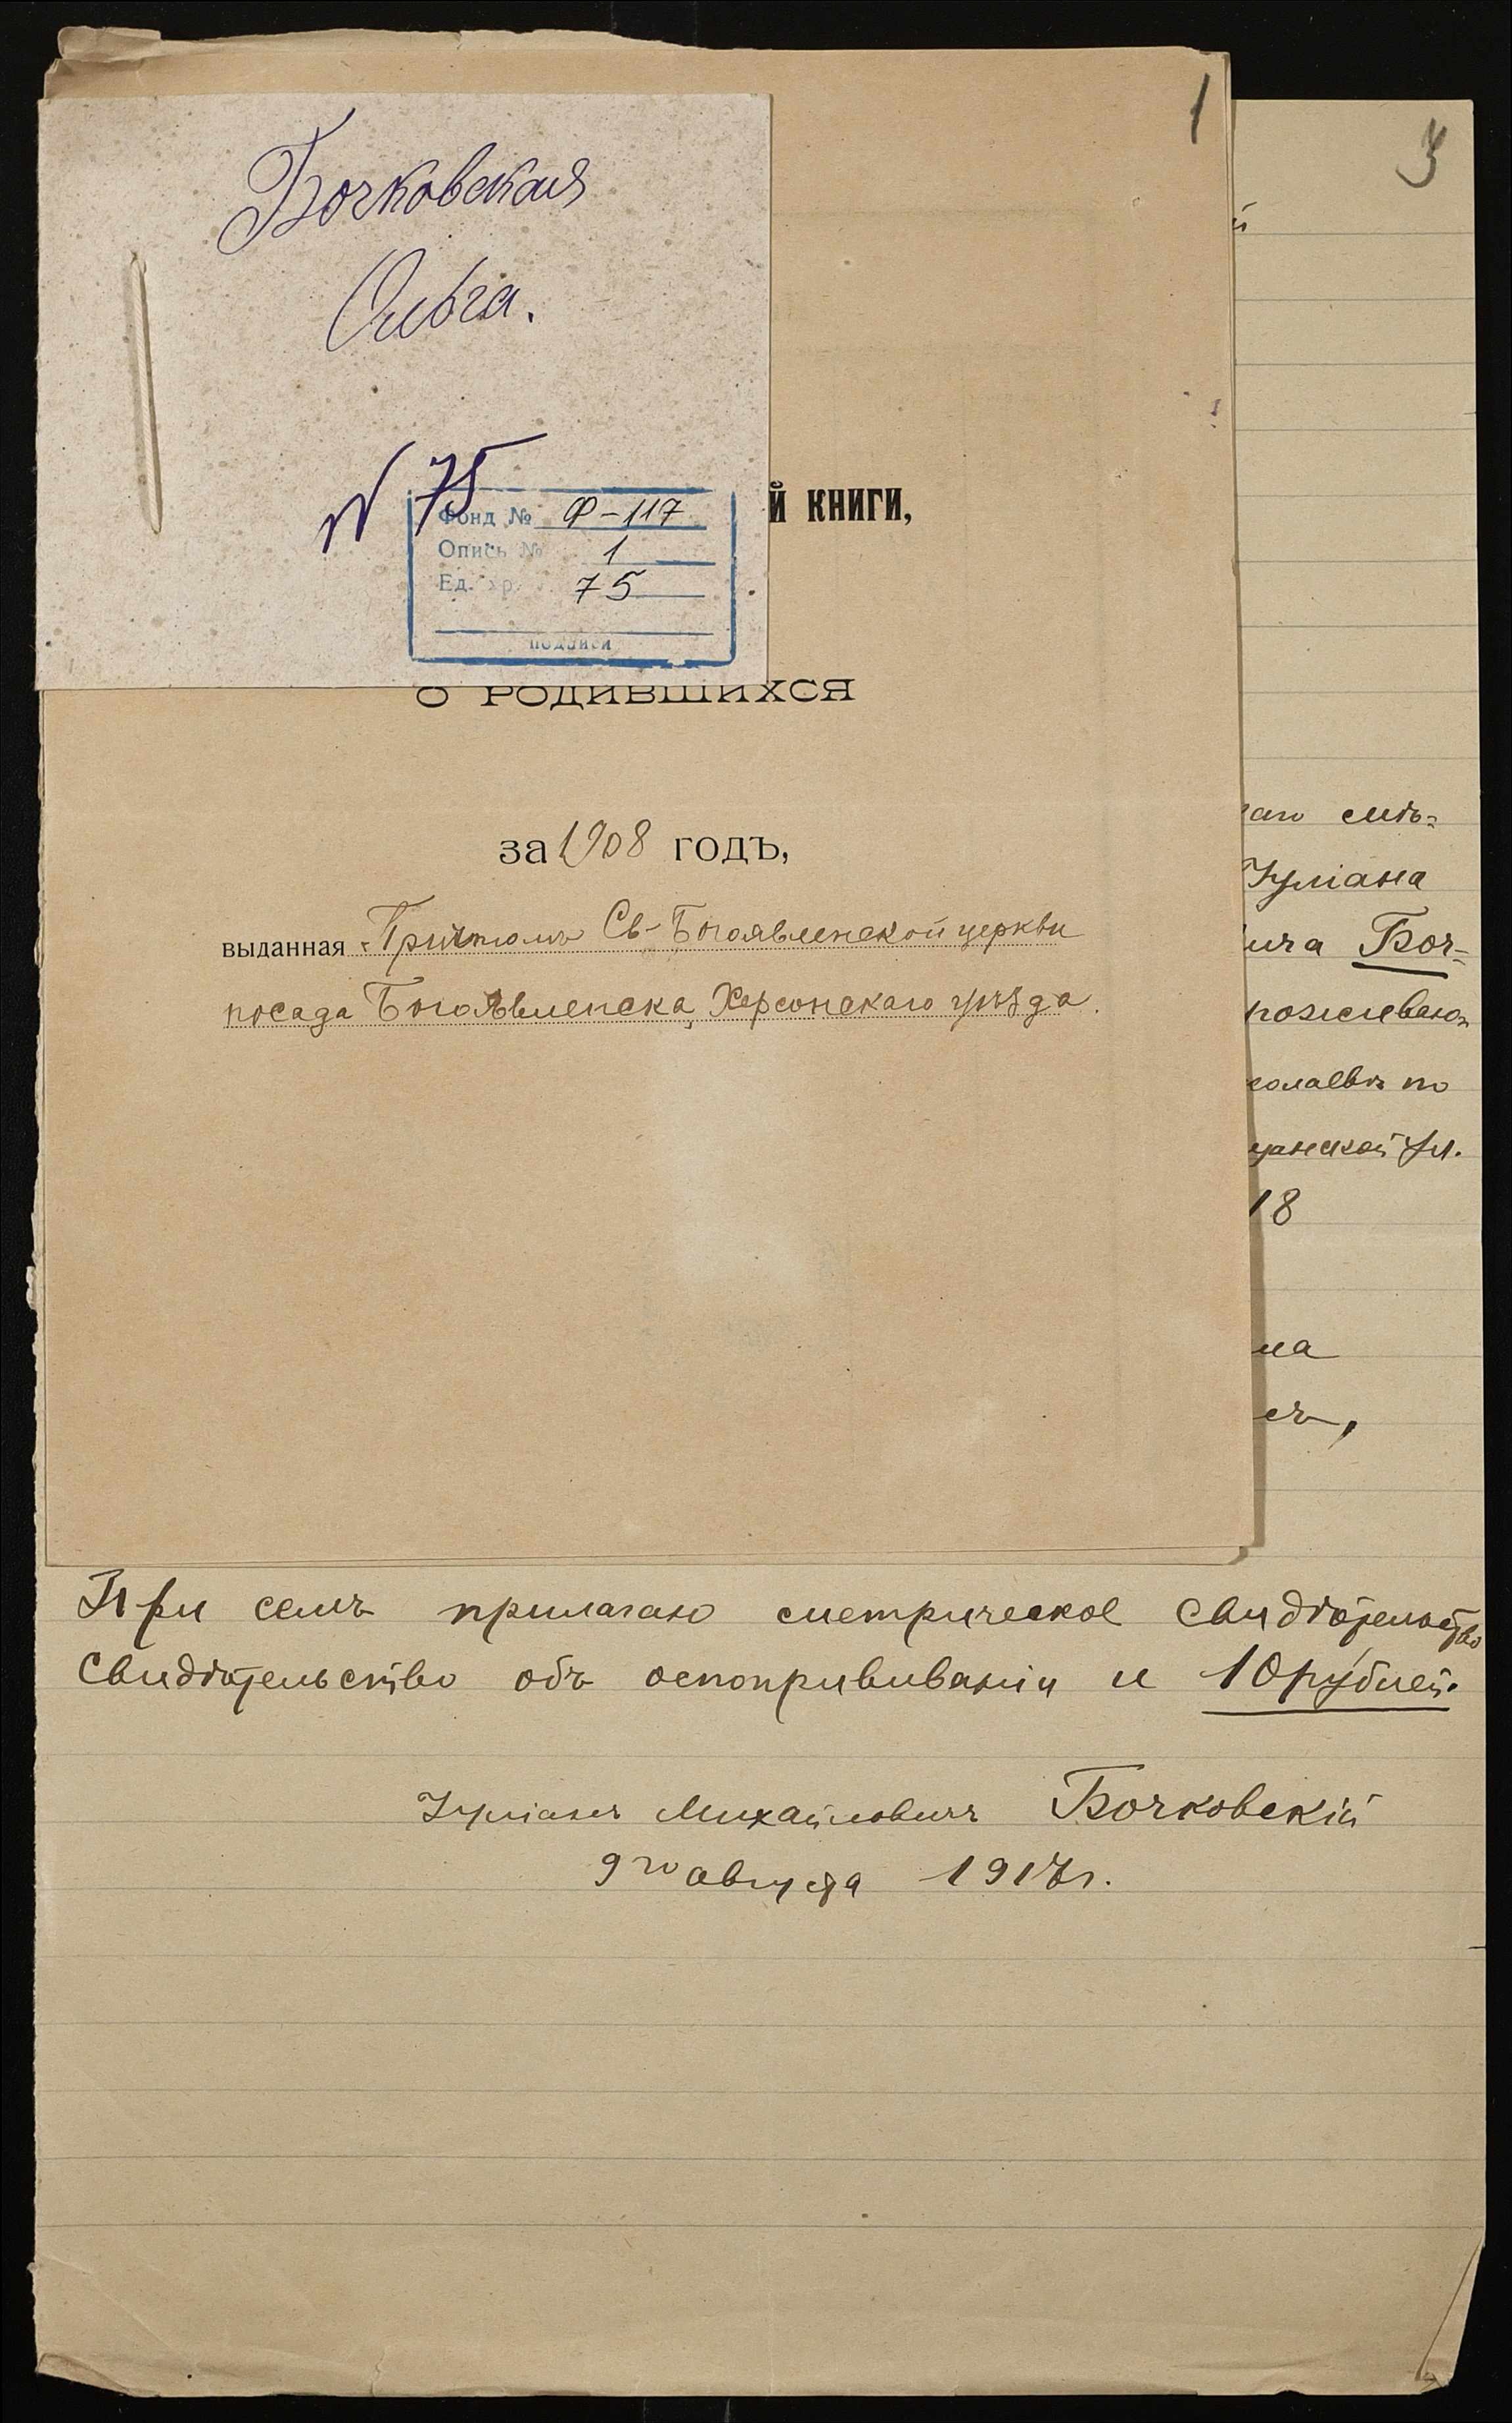 Бочковская
Ольга.
N 75
Фонд № Ф-117
Опись № 1
Ед. хр. 75
подписи
1
й КНИГИ,
О РОДИВШИХСЯ
за 1908 годъ,
выданная Причтомъ Св-Богоявленской церкви
посада Богоявленска, Херсонскаго уѣзда.
3
й
аго мѣ-
Іуліана
ича Боч-
роживаю-
колаевѣ по
анской ул.
18
При семъ прилагаю метрическое свидѣтельство
свидѣтельство объ оспопрививаніи и 10 рублей.
Іуліанъ Михайловичъ Бочковскій
9го августа 1917г.